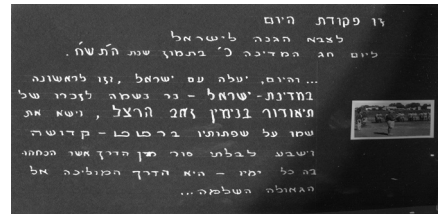 זו פקודת היום
לצבא הגנה לישראל
ליום חג המדינה כ׳ בתמוז שנת ה׳תש״ח.
...והיום, יעלה עם ישראל, וזו לראשונה
במדינת-ישראל - נר נשמה לזכרו של
תיאודור בנימין זאב הרצל, וישא את
שמו על שפתותיו ברטט-קדושה
וישבע לבלתי סור מן הדרך אשר הנחהו
בה כל ימיו - היא הדרך המוליכה אל
הגאולה השלמה...